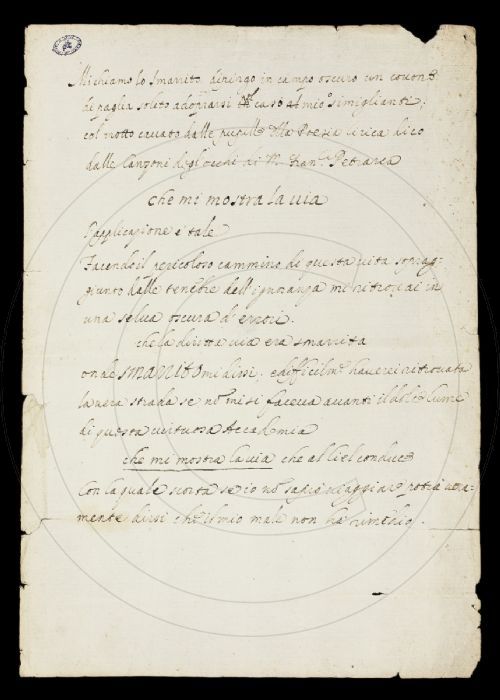 Mi chiamo lo Smarrito dipingo in campo oscuro un covone
di paglia solito adoprarsi in caso al mio simiglianti;
col motto cavato dalle pupille della Poesia lirica dico
dalle Canzoni degl'occhi di M. Fran.co Petrarca
che mi mostra la via
L'applicazione è tale
Facendo il pericoloso cammino di questa vita soprag-
giunto dalle tenebre dell'ignoranza mi ritrovai in
una selva oscura di errori.
che la diritta via era smarrita
onde SMARRITO mi dissi, e difficilm.te haverei ritrovata
la vera strada se nõ mi si faceva avanti il dolce lume
di questa virtuosa Accademia
che mi mostra la via che al Ciel conduce
Con la quale scorta se io nõ sapró viaggiare potrà vera-
mente dirsi che il mio male non ha rimedio.